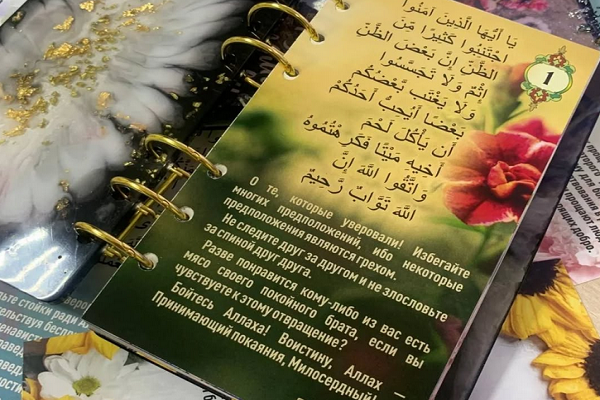 يَا أَيُّهَا الَّذِينَ آمَنُوا
اجْتَنِبُوا كَثِيرًا مِّنَ الظَّنِّ
إِنَّ بَعْضَ الظَّنِّ
إِثْمٌ وَلَا تَجَسَّسُوا
وَلَا يَغْتَب بَّعْضُكُم
بَعْضًا أَيُحِبُّ أَحَدُكُمْ
أَن يَأْكُلَ لَحْمَ
أَخِيهِ مَيْتًا فَكَرِهْتُمُوهُ
وَاتَّقُوا اللَّهَ إِنَّ
اللَّهَ تَوَّابٌ رَّحِيمٌ
1
О те, которые уверовали! Избегайте
многих предположений, ибо некоторые
предположения являются грехом.
Не следите друг за другом и не злословьте
за спиной друг друга.
Разве понравится кому-либо из вас есть
мясо своего покойного брата, если вы
чувствуете к этому отвращение?
Бойтесь Аллаха! Воистину, Аллах —
Принимающий покаяния, Милосердный!